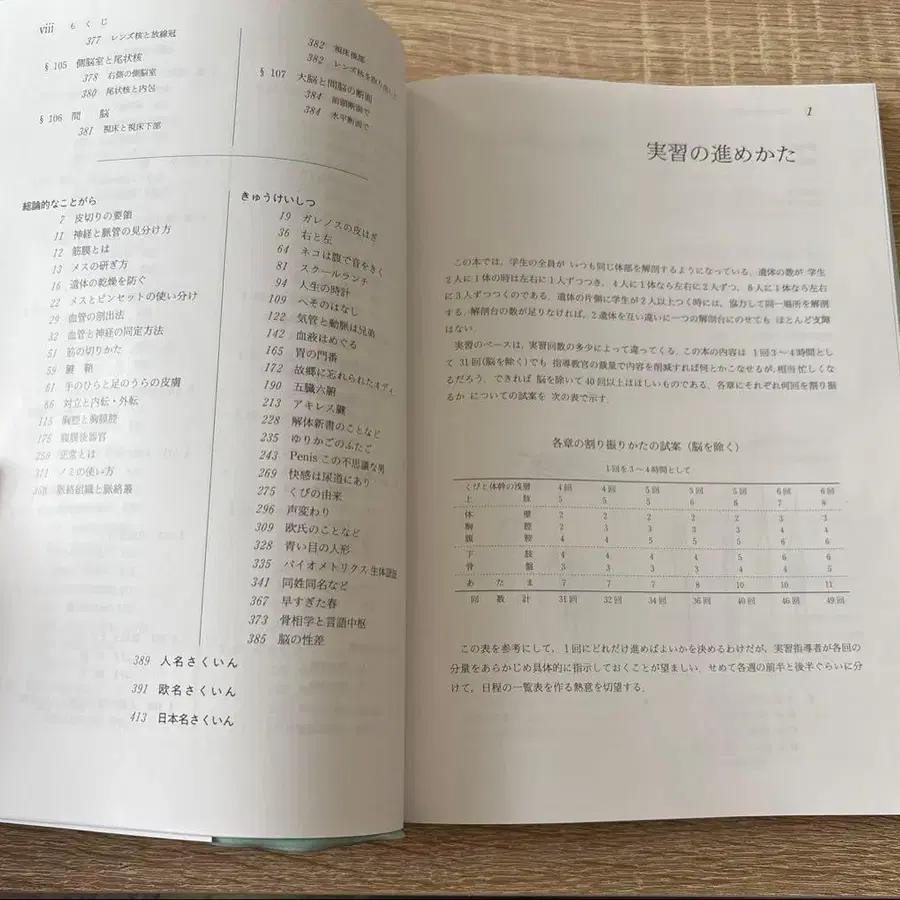 viii もくじ
377 レンズ核と放線冠
§ 105 側脳室と尾状核
378 右側の側脳室
380 尾状核と内包
§ 106 間脳
381 視床と視床下部
382 視床後部
382 レンズ核を取り出して
§ 107 大脳と間脳の断面
384 前頭断面で
384 水平断面で
総論的なことがら
7 皮切りの要領
11 神経と脈管の見分け方
12 筋膜とは
13 メスの研ぎ方
16 遺体の乾燥を防ぐ
22 メスとピンセットの使い分け
29 血管の剖出法
32 血管と神経の同定方法
51 筋の切りかた
59 腱鞘
61 手のひらと足のうらの皮膚
86 対立と内転・外転
115 胸腔と胸膜腔
175 腹膜後器官
250 正常とは
311 ノミの使い方
358 脈絡組織と脈絡叢
きゅうけいしつ
19 ガレノスの皮はぎ
36 右と左
64 ネコは腹で音をきく
81 スクールランチ
94 人生の時計
109 へそのはなし
122 気管と動脈は兄弟
142 血液はめぐる
165 胃の門番
172 故郷に忘れられたオディ
190 五臓六腑
213 アキレス腱
228 解体新書のことなど
235 ゆりかごのふたご
243 Penis この不思議な男
269 快感は尿道にあり
275 くびの由来
296 声変わり
309 欧氏のことなど
328 青い目の人形
335 バイオメトリクス 生体認証
341 同姓同名など
367 早すぎた春
373 骨相学と言語中枢
385 脳の性差
389 人名さくいん
391 欧名さくいん
413 日本名さくいん
1
実習の進めかた
この本では，学生の全員が いつも同じ体部を解剖するようになっている．遺体の数が 学生
2人に1体の時は左右に1人ずつつき，4人に1体なら左右に2人ずつ，6人に1体なら左右
に3人ずつつくのである．遺体の片側に学生が2人以上つく時には，協力して同一場所を解剖
する．解剖台の数が足りなければ，2遺体を互い違いに一つの解剖台にのせても ほとんど支障
はない．
実習のペースは，実習回数の多少によって違ってくる．この本の内容は 1回3～4時間とし
て 31回(脳を除く)でも 指導教官の裁量で内容を削減すれば何とかこなせるが，相当 忙しくな
るだろう．できれば 脳を除いて40回以上はほしいものである．各章にそれぞれ何回を割り振
るか についての試案を 次の表で示す．
各章の割り振りかたの試案（脳を除く）
1回を3～4時間として
くびと体幹の浅層 4回 4回 5回 5回 5回 6回 6回
上肢 5 5 5 6 6 7 8
体壁 2 2 2 2 2 3 3
胸腔 2 3 3 3 3 4 4
腹腔 4 4 5 5 6 6 6
下肢 4 4 4 4 5 6 6
骨盤 3 3 3 3 4 4 5
あたま 7 7 7 8 10 10 11
回数計 31回 32回 34回 36回 40回 46回 49回
この表を参考にして，1回にどれだけ進めばよいかを決めるわけだが，実習指導者が各回の
分量をあらかじめ具体的に指示しておくことが望ましい．せめて各週の前半と後半ぐらいに分
けて，日程の一覧表を作る熱意を切望する．